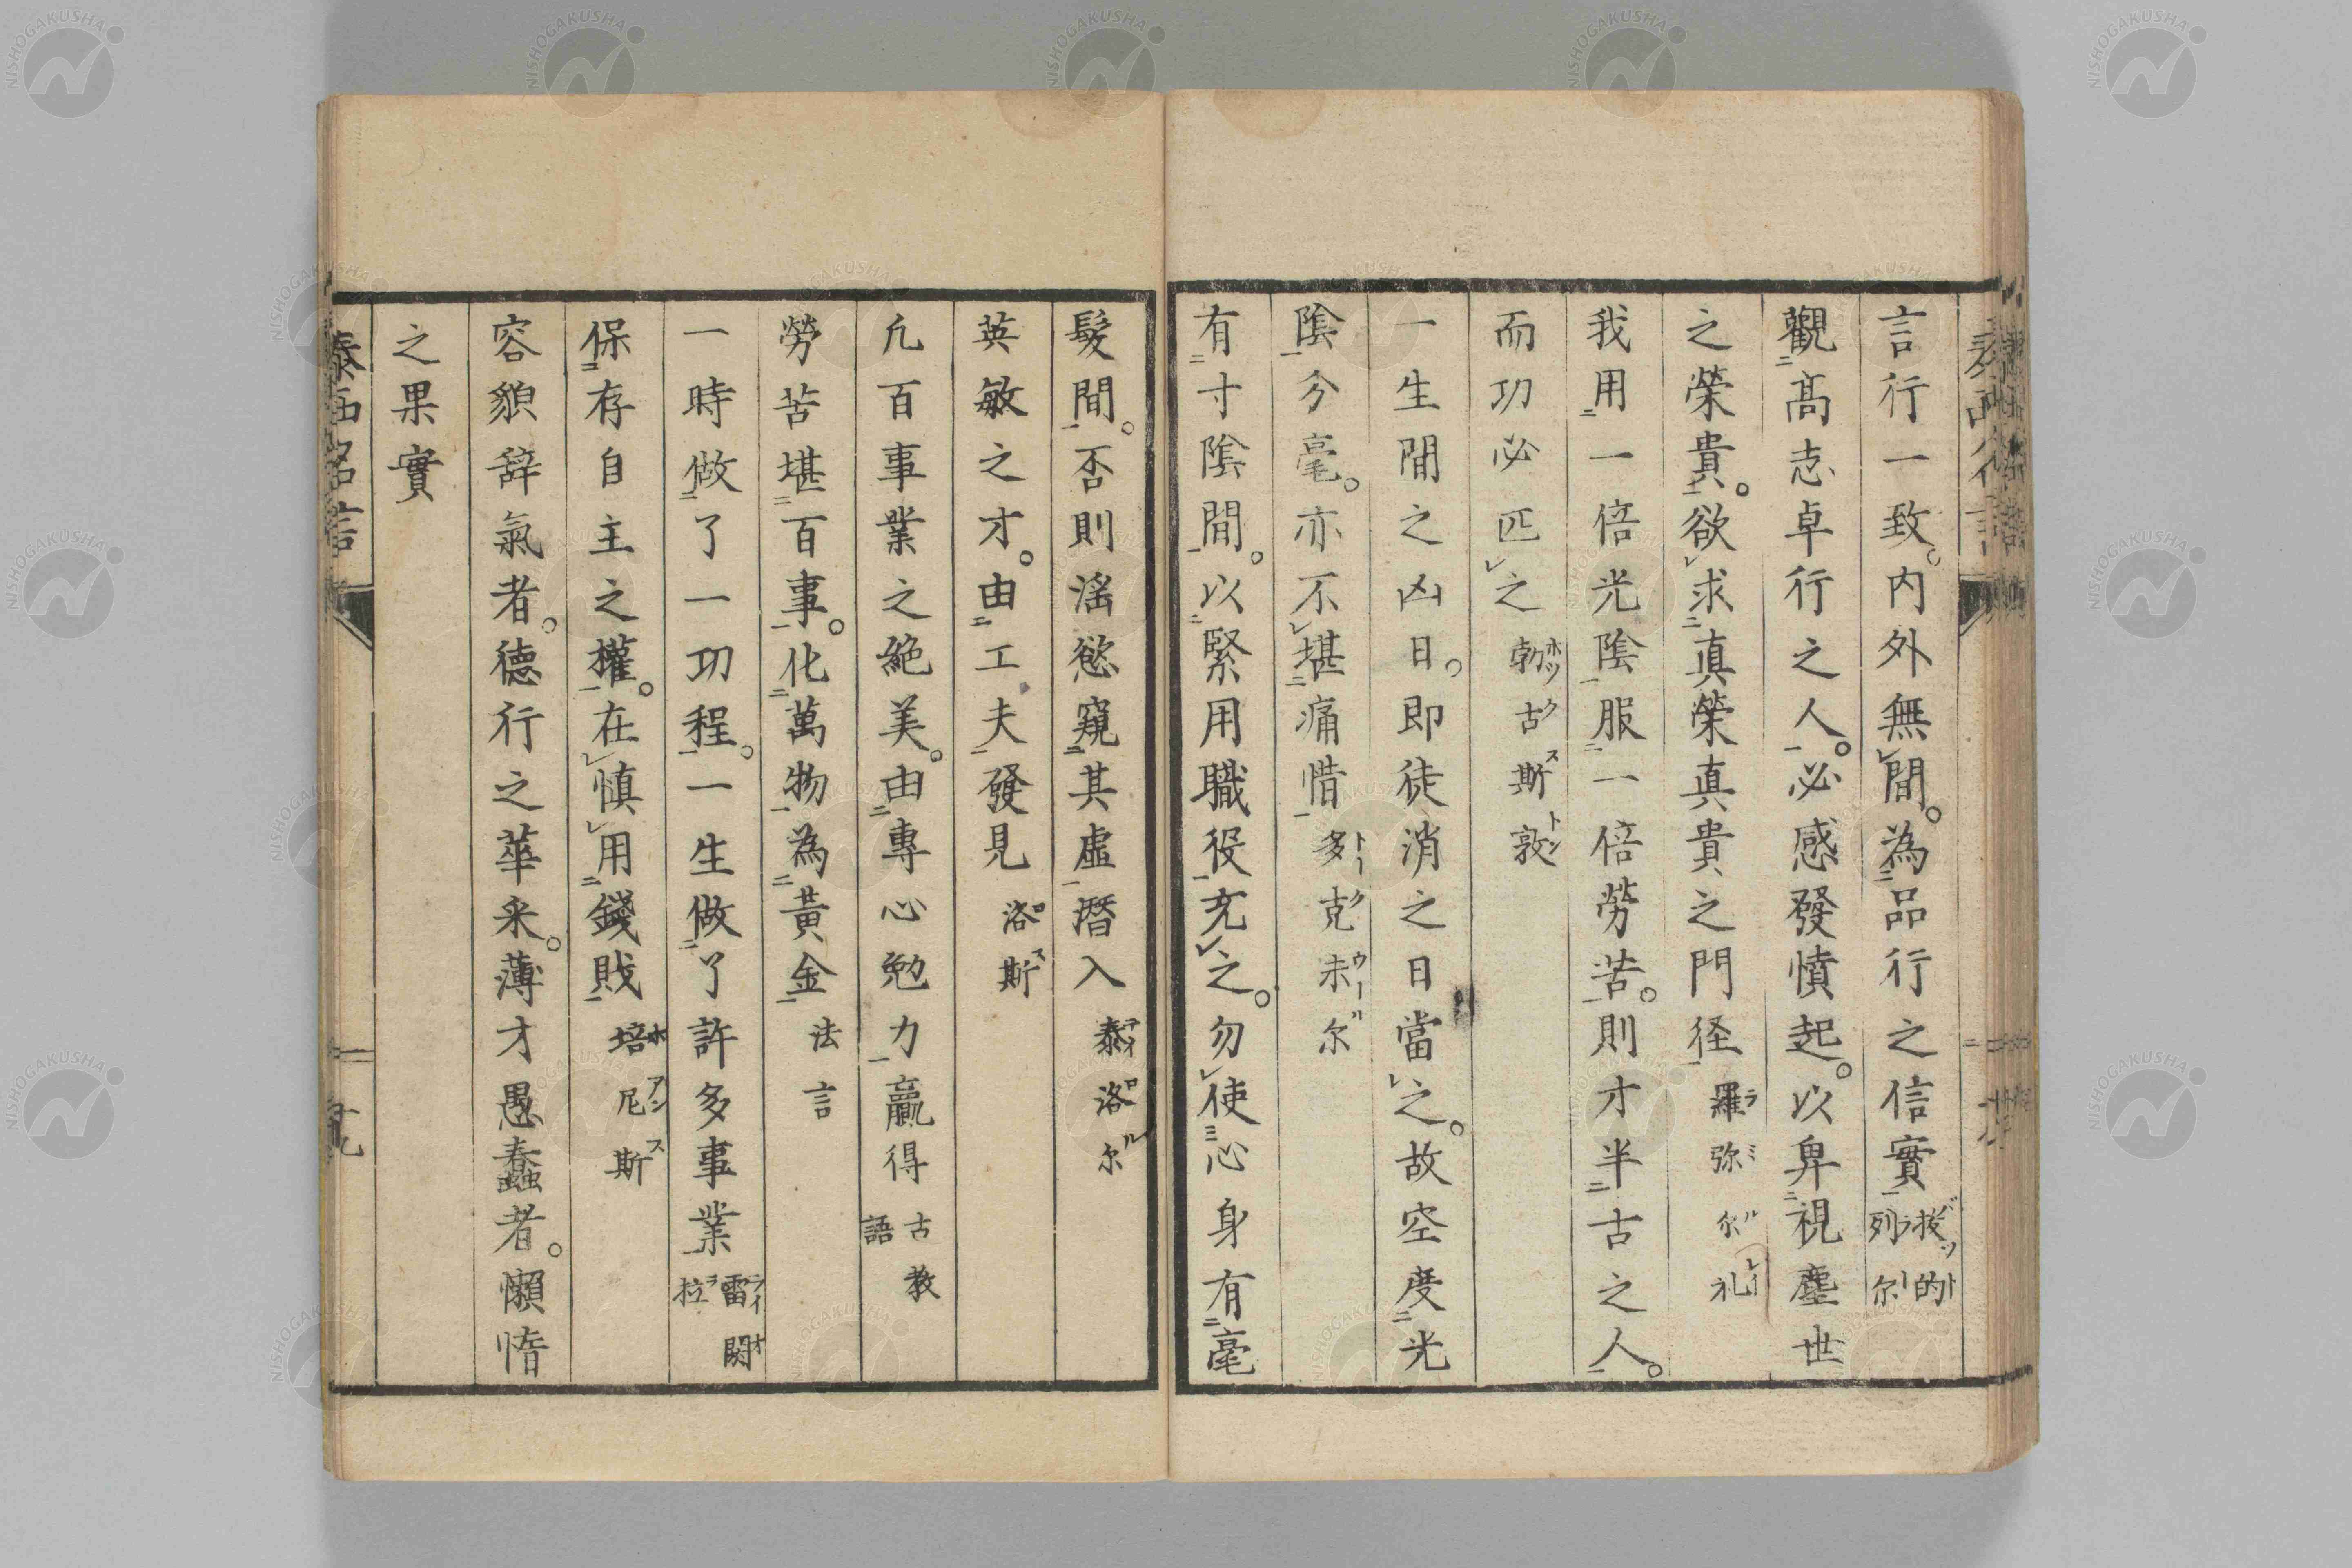 言行一致。内外無間。為品行之信實 抜的列尔
觀高志卓行之人。必感發憤起。以卑視塵世
之榮貴。欲求真榮真貴之門径 羅弥尔礼
我用一倍光陰服一倍勞苦。則才半古之人。
而功必匹之 勃古斯敦
一生間之凶日。即徒消之日當之。故空度光
陰分毫。亦不堪痛惜 多克未尔
有寸陰間。以緊用職役充之。勿使心身有毫
髮間。否則滛慾窺其虛潛入 泰洛尔
英敏之才。由工夫發見 洛斯
凢百事業之絶美。由專心勉力贏得 古教語
勞苦堪百事。化萬物為黃金 法言
一時做了一功程。一生做了許多事業 雷閎拉
保存自主之權。在慎用錢賎 培尼斯
容貌辞氣者。德行之華釆。薄才愚蠢者。懶惰
之果實
泰西名言
NISHOGAKUSHA